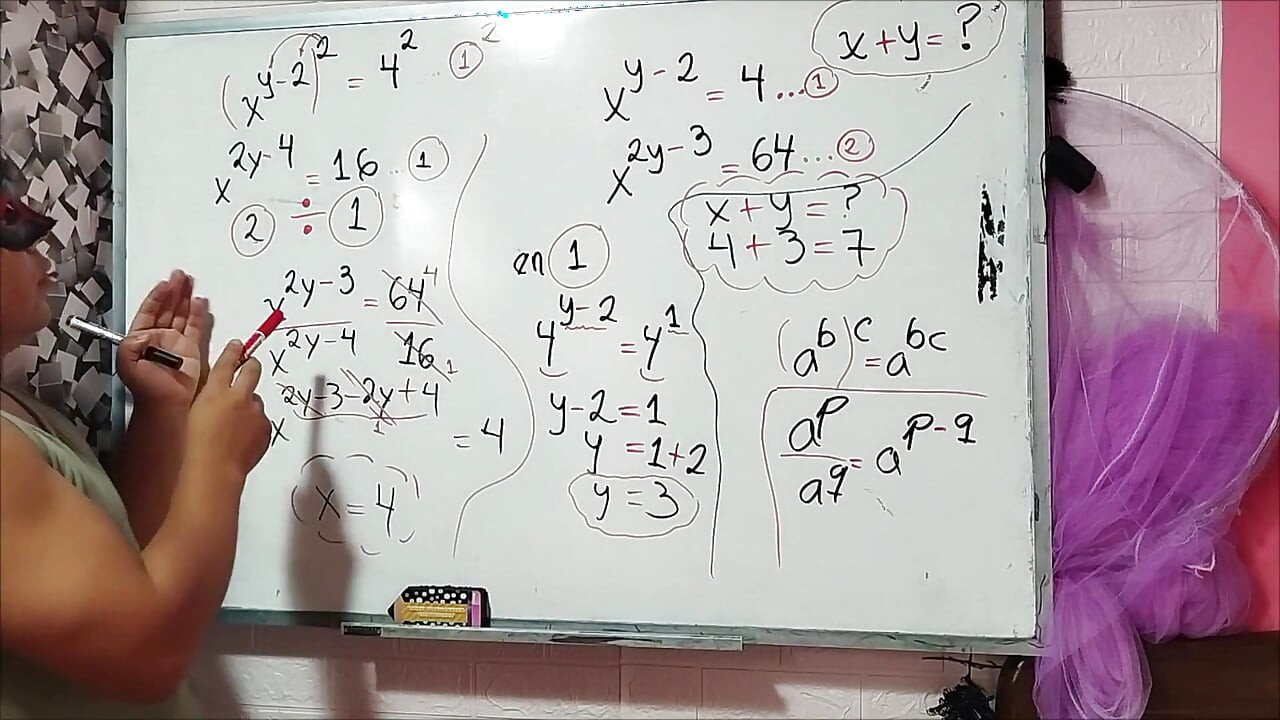 (x^{y-2})^2 = 4^2 .. ①^2
x^{2y-4} = 16 .. ①
② ÷ ①
x^{2y-3} / x^{2y-4} = 64^4 / 16_1
x^{2y-3-2y+4} = 4
1
x = 4
en ①
4^{y-2} = 4^1
y-2 = 1
y = 1+2
y = 3
x+y = ?
x^{y-2} = 4 ... ①
x^{2y-3} = 64 ... ②
x+y = ?
4+3 = 7
(a^b)^c = a^{bc}
a^p / a^q = a^{p-q}